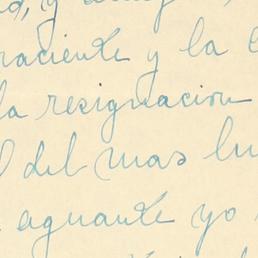 y
raciente y la
la resignacion
del mas lu
aguante yo